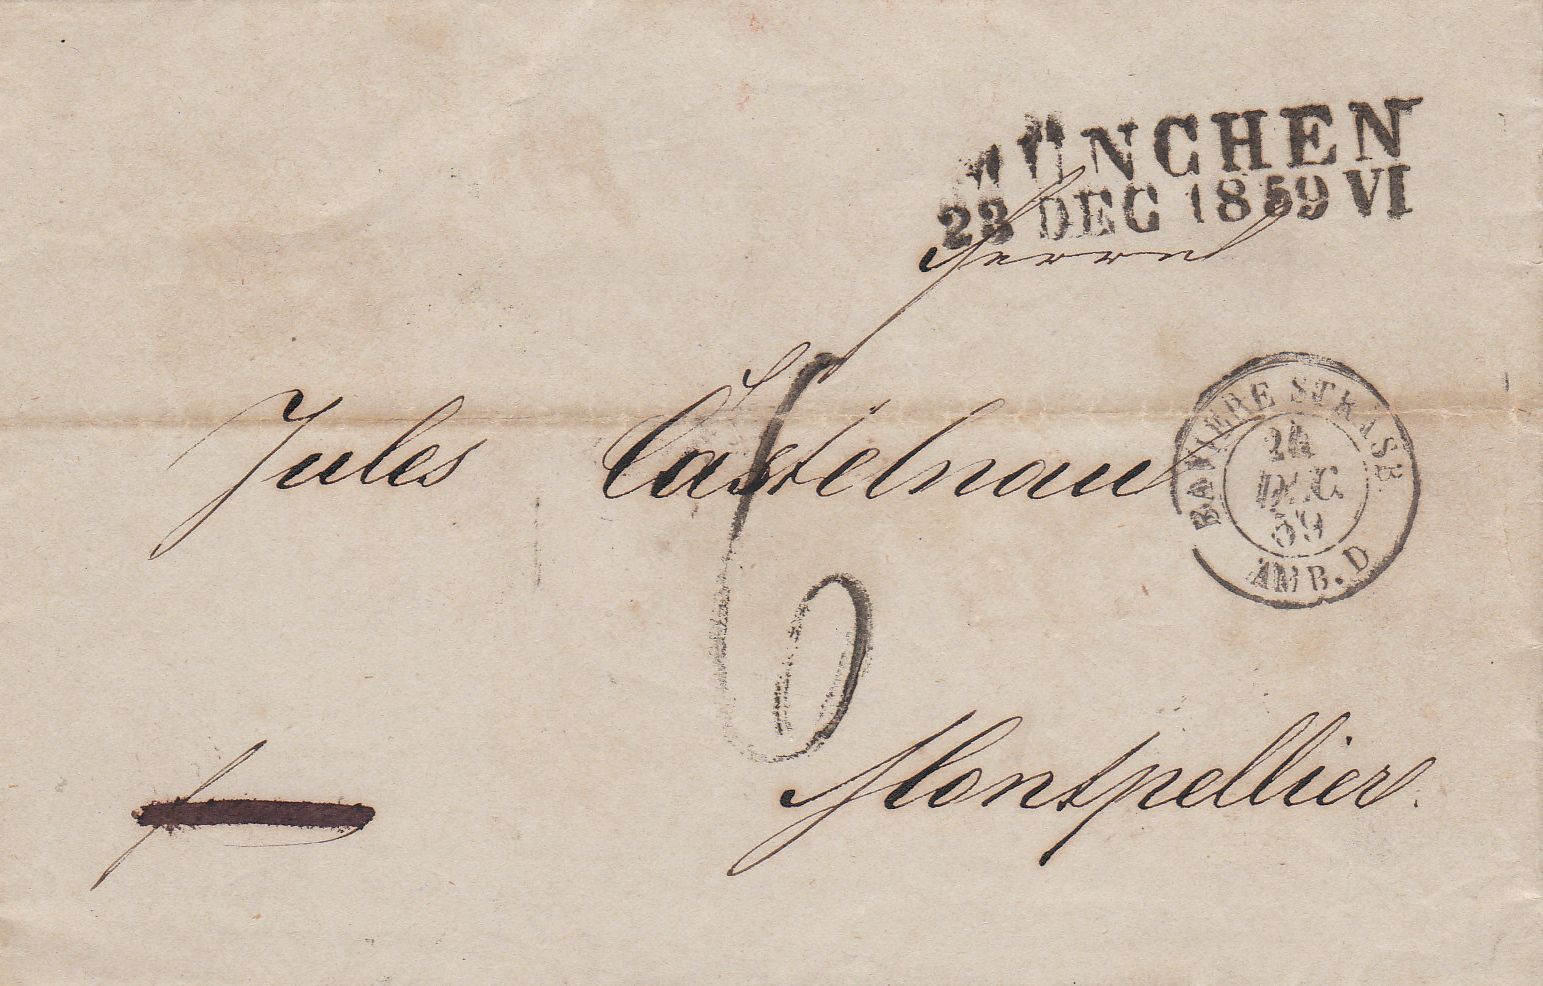 MÜNCHEN
23 DEC 1859 VI
Herrn
Jules Castelnau
6
BAVIERE STRASB
24
DEC.
59
AMB. D
Montpellier.